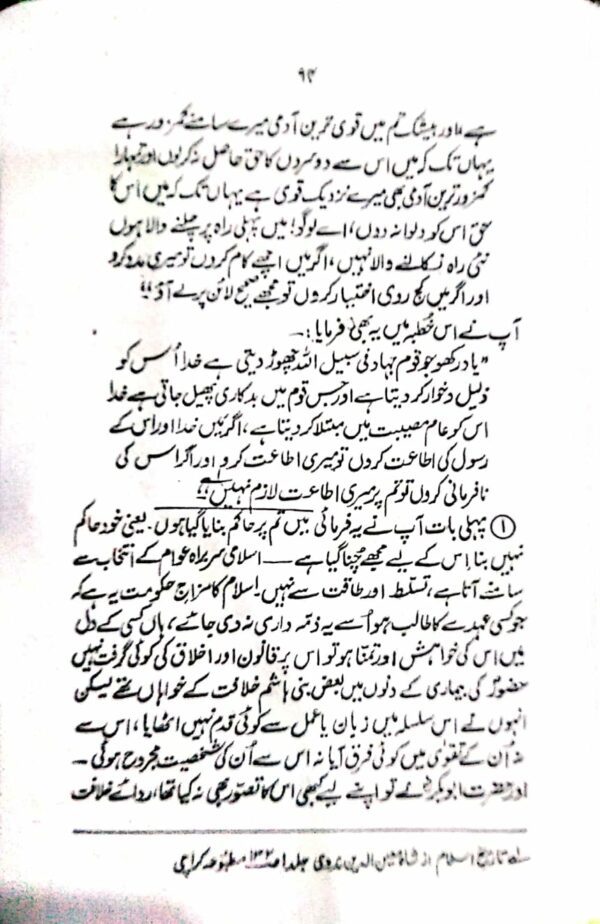 ۹۴
ہے "اور بیشک تم میں قوی ترین آدمی میرے سامنے کمزور ہے
یہاں تک کہ میں اس سے دوسروں کا حق حاصل نہ کرلوں اور تمہارا
کمزور ترین آدمی بھی میرے نزدیک قوی ہے یہاں تک کہ میں اس کا
حق اس کو دلوا نہ دوں، اے لوگو! میں پہلی راہ پر چلنے والا ہوں
نئی راہ نکالنے والا نہیں، اگر میں اچھے کام کروں تو میری مدد کرو
اور اگر میں کج روی اختیار کروں تو مجھے صحیح لائن پر لے آؤ"
آپ نے اس خطبہ میں یہ بھی فرمایا :۔
"یاد رکھو جو قوم جہاد فی سبیل اللہ چھوڑ دیتی ہے خدا اُس کو
ذلیل و خوار کر دیتا ہے اور جس قوم میں بدکاری پھیل جاتی ہے خدا
اس کو عام مصیبت میں مبتلا کر دیتا ہے، اگر میں خدا اور اس کے
رسول کی اطاعت کروں تو میری اطاعت کرو اور اگر اس کی
نافرمانی کروں تو تم پر میری اطاعت لازم نہیں"
① پہلی بات آپ نے یہ فرمائی میں تم پر حاکم بنایا گیا ہوں۔ یعنی خود حاکم
نہیں بنا، اس کے لیے مجھے چُنا گیا ہے — اسلامی سربراہ عوام کے انتخاب سے
سامنے آتا ہے، تسلط اور طاقت سے نہیں، اسلام کا مزاج حکومت یہ ہے کہ
جو کسی عہدے کا طالب ہو اُسے یہ ذمہ داری نہ دی جائے، ہاں کسی کے دل
میں اس کی خواہش اور تمنا ہو تو اس پر قانون اور اخلاق کی کوئی گرفت نہیں
حضورؐ کی بیماری کے دنوں میں بعض بنی ہاشم خلافت کے خواہاں تھے لیکن
انہوں نے اس سلسلہ میں زبان یا عمل سے کوئی قدم نہیں اٹھایا، اس سے
نہ اُن کے تقویٰ میں کوئی فرق آیا نہ اس سے اُن کی شخصیت مجروح ہوئی —
اور حضرت ابوبکرؓ نے تو اپنے لیے کبھی اس کا تصور بھی نہ کیا تھا، ردائے خلافت
لہ تاریخ اسلام از شاہ معین الدین ندوی جلد ۱ مطبوعہ کراچی